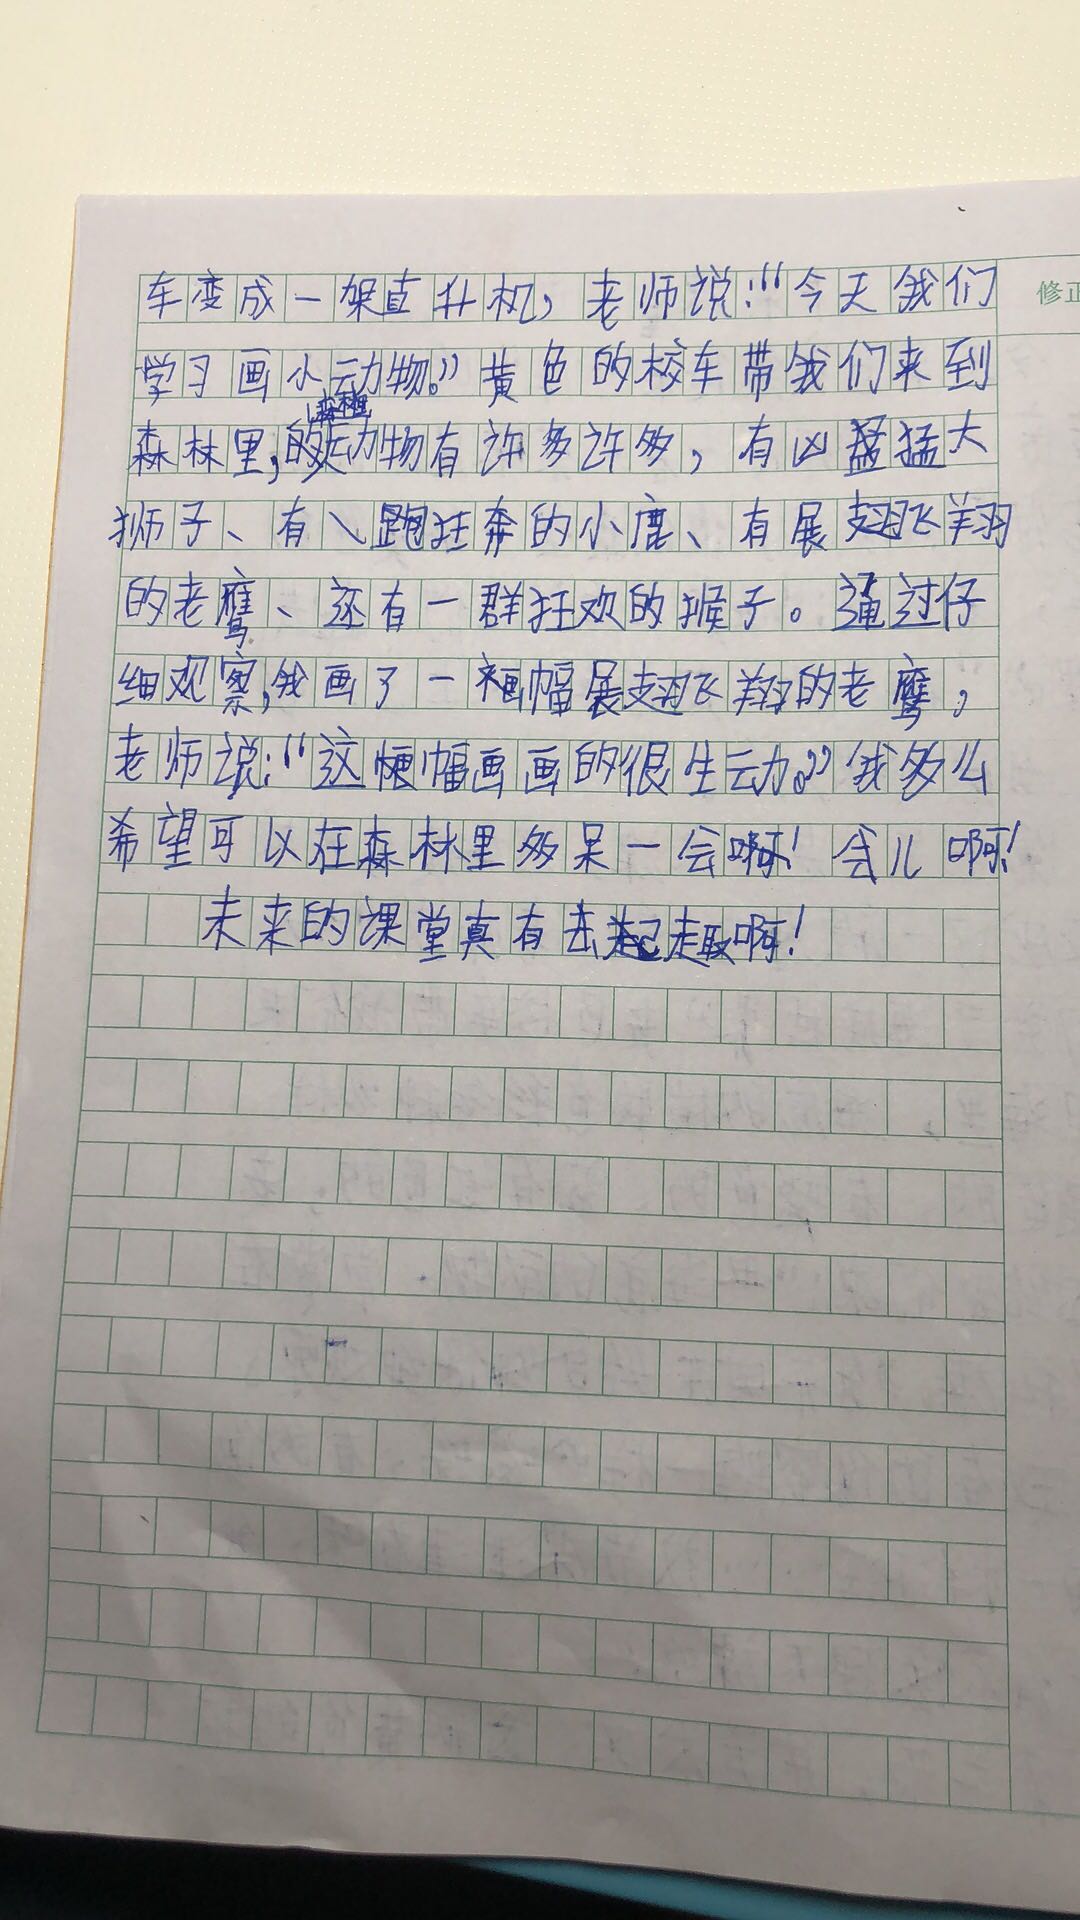 车变成一架直升机，老师说：“今天我们
修正
学习画小动物。”黄色的校车带我们来到
森林里
森林里，的动物有许多许多，有凶猛猛大
狮子、有跑狂奔的小鹿、有展翅飞翔
的老鹰、还有一群狂欢的猴子。通过仔
细观察，我画了一幅展翅飞翔的老鹰，
老师说：“这幅画画的很生动。”我多么
希望可以在森林里多呆一会啊！会儿啊！
未来的课堂真有去起趣啊！